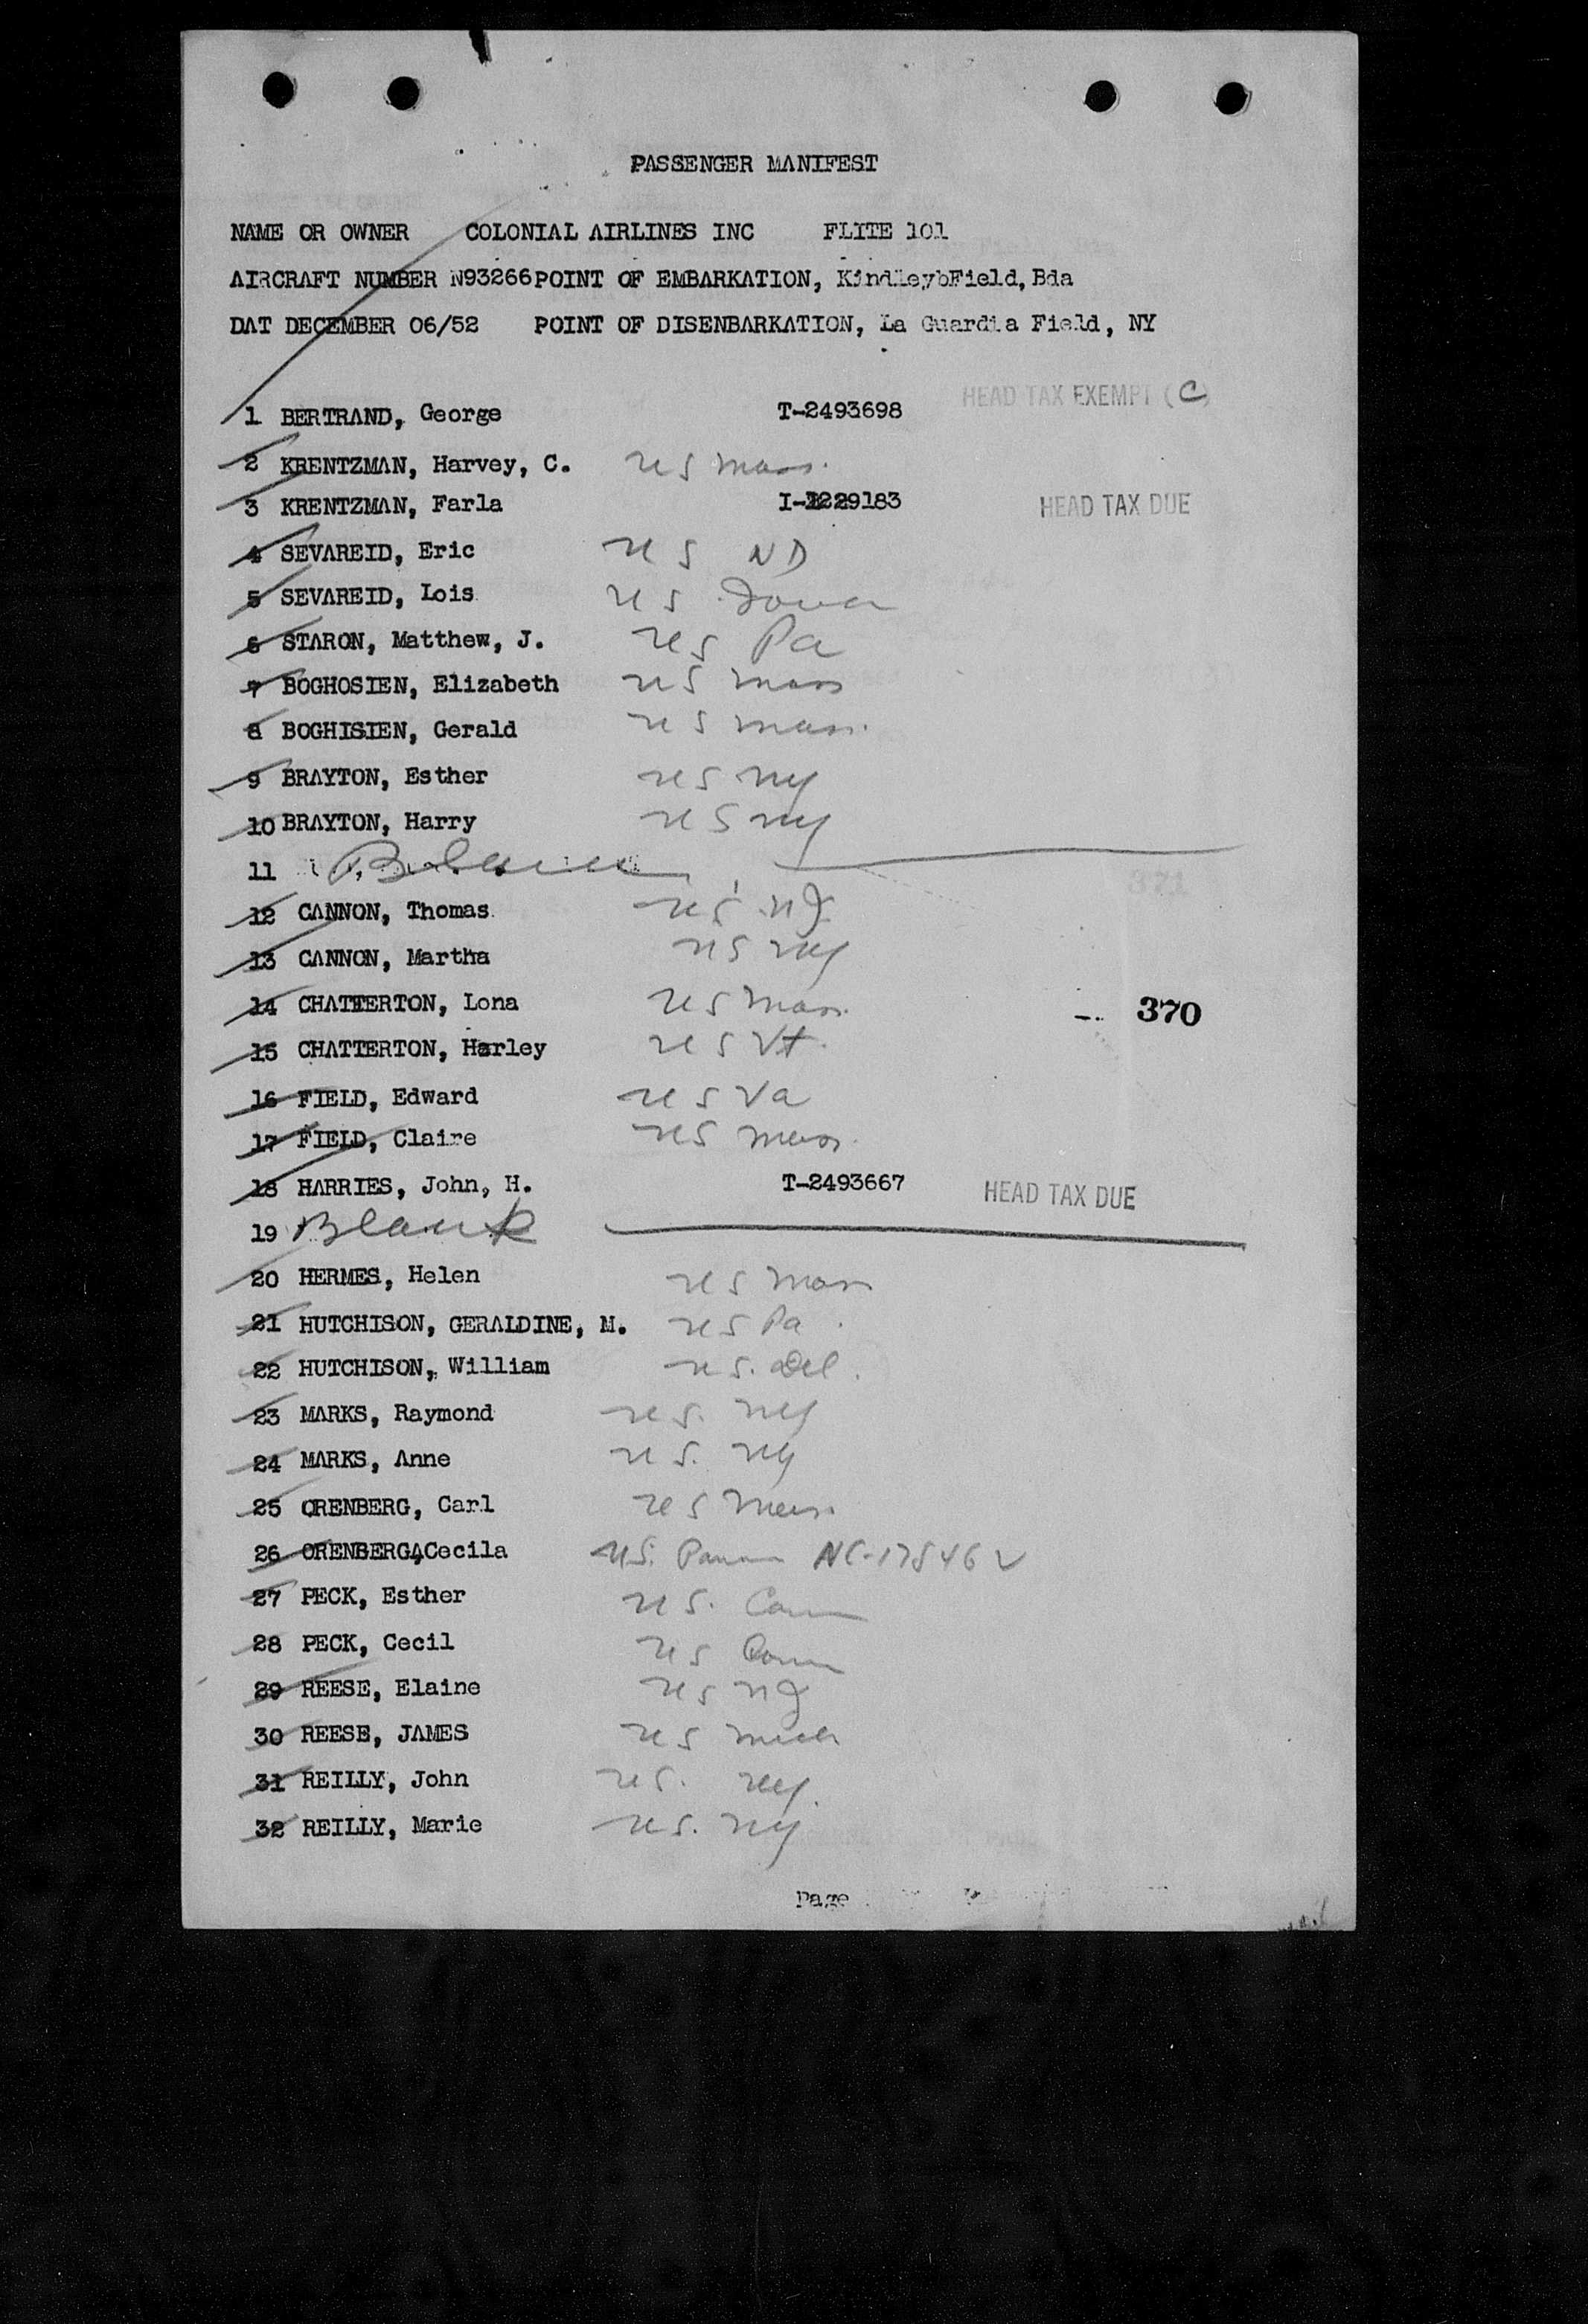 PASSENGER MANIFEST
NAME OR OWNER COLONIAL AIRLINES INC FLITE 101
AIRCRAFT NUMBER N93266 POINT OF EMBARKATION, KindleybField, Bda
DAT DECEMBER 06/52 POINT OF DISENBARKATION, La Guardia Field, NY
HEAD TAX EXEMPT (C)
1 BERTRAND, George T-2493698
2 KRENTZMAN, Harvey, C. US Mass.
3 KRENTZMAN, Farla HEAD TAX DUE
4 SEVAREID, Eric US ND
5 SEVAREID, Lois US Iowa
6 STARON, Matthew, J. US Pa
7 BOGHOSIEN, Elizabeth US Mass
8 BOGHISIEN, Gerald US Mass.
9 BRAYTON, Esther US NY
10 BRAYTON, Harry US NY
11 Blank
12 CANNON, Thomas US NJ
13 CANNON, Martha US NY
14 CHATTERTON, Lona US Mass.
370
15 CHATTERTON, Harley US Vt.
16 FIELD, Edward US Va
17 FIELD, Claire US Mass.
18 HARRIES, John, H. T-2493667 HEAD TAX DUE
19 Blank
20 HERMES, Helen US Mass
21 HUTCHISON, GERALDINE, M. US Pa.
22 HUTCHISON, William US. Del.
23 MARKS, Raymond US. NY
24 MARKS, Anne US. NY
25 ORENBERG, Carl US Mass.
26 ORENBERG, Cecila US. NC-17546
27 PECK, Esther US. Conn
28 PECK, Cecil US Conn
29 REESE, Elaine US NJ
30 REESE, JAMES US Mich
31 REILLY, John US. NY.
32 REILLY, Marie US. NY
Page